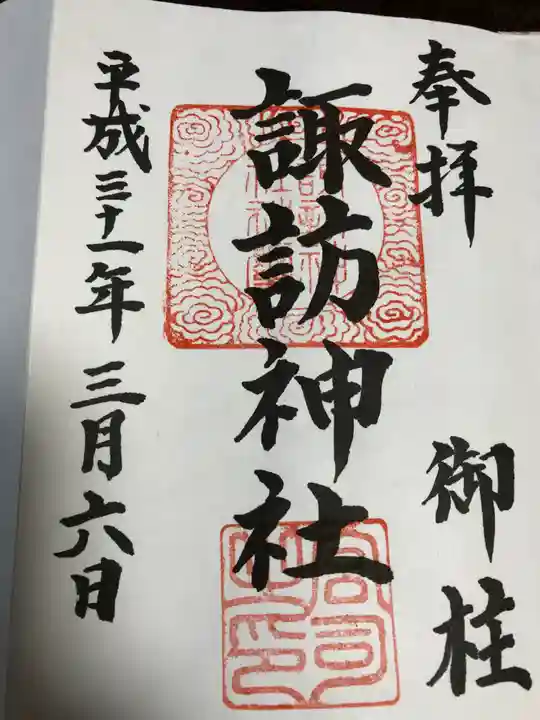 奉拝
御柱
諏訪神社
平成三十一年三月六日